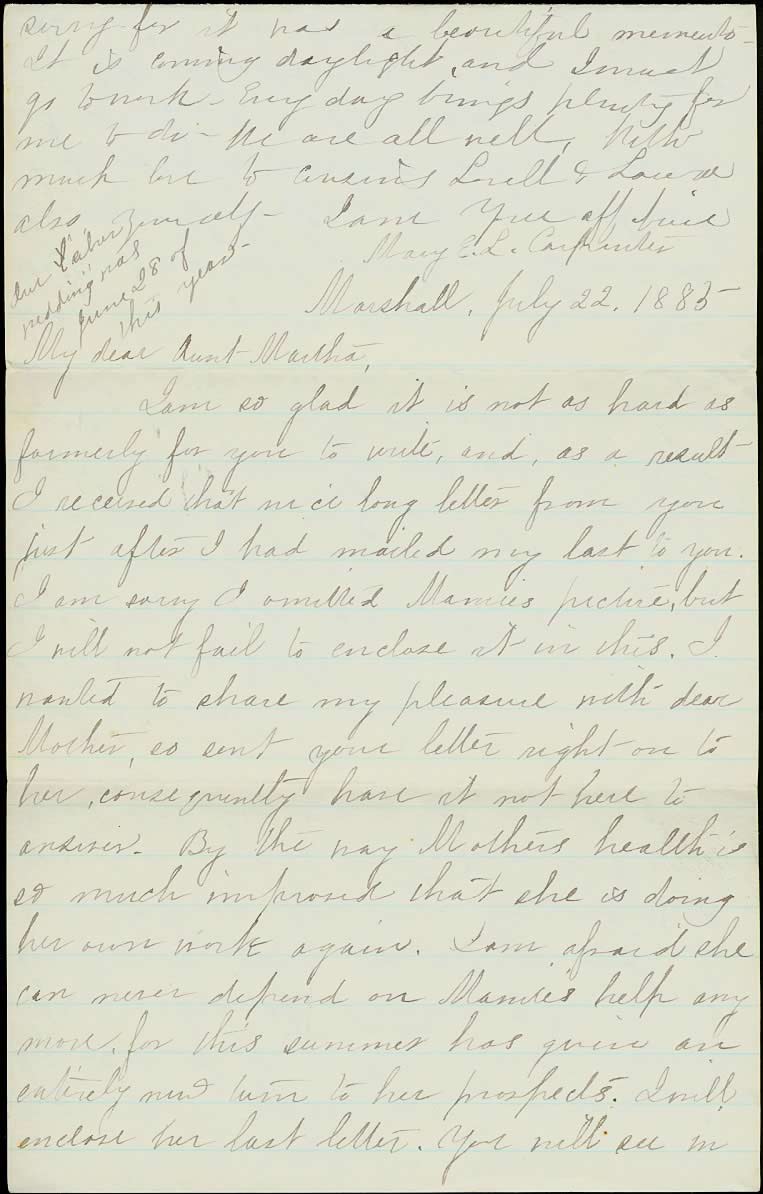 sorry for it was a beautiful memento -
It is coming daylight, and I must
go to work - Every day brings plenty for
me to do - We are all well, With
much love to cousins Lovell & Louise
also yourself - I am Your aff niece
Mary E. L. Carpenter
Our
wedding was
June 28 of
this year -
Marshall, July 22, 1885
My dear Aunt Martha,
I am so glad it is not as hard as
formerly for you to write, and, as a result
I received that nice long letter from you
just after I had mailed my last to you.
I am sorry I omitted Mamies picture, but
I will not fail to enclose it in this. I
wanted to share my pleasure with dear
Mother, so sent your letter right on to
her, consequently have it not here to
answer. By the way Mothers health is
so much improved that she is doing
her own work again. I am afraid she
can never depend on Mamies help any
more, for this summer has given an
entirely new turn to her prospects. I will
enclose her last letter. You will see in